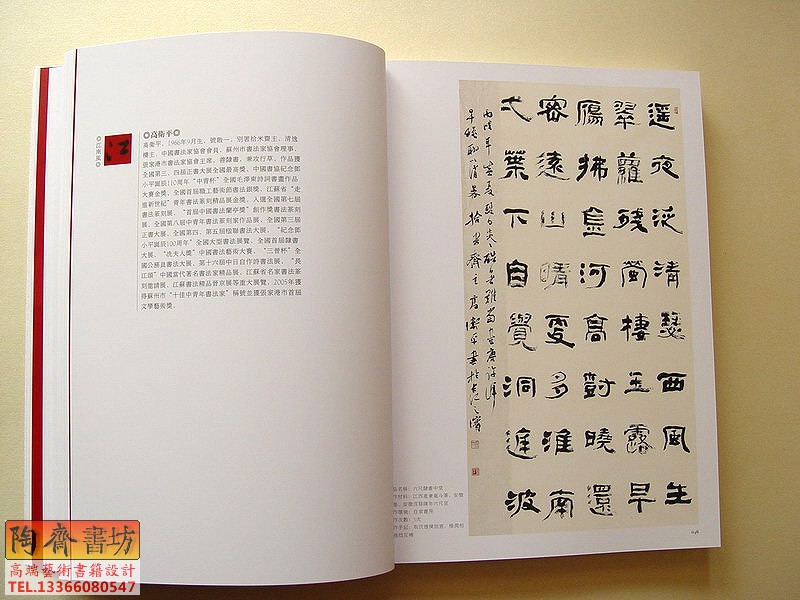 ◎江南風◎
江
◎高衛平◎
高衛平，1966年9月生，號散一，別署拾米齋主、清逸
樓主，中國書法家協會會員，蘇州市書法家協會理事，
張家港市書法家協會主席，善隸書，兼攻行草，作品獲
全國第三、四屆正書大展全國最高獎，中國書協紀念鄧
小平誕辰110周年“中青杯”全國毛澤東詩詞書畫作品
大賽金獎、全國首屆職工藝術節書法銀獎、江蘇省“走
進新世紀”青年書法篆刻精品展金獎，入選全國第七屆
書法篆刻展、“首屆中國書法蘭亭獎”創作獎書法篆刻
展、全國第八屆中青年書法篆刻家作品展、全國第三屆
正書大展、全國第四、第五屆楹聯書法大展、“紀念鄧
小平誕辰100周年”全國大型書法展覽、全國首屆隸書
大展、“冼夫人獎”中國書法藝術大賽、“三晉杯”全
國公務員書法大展、第十六屆中日自作詩書法展、“長
江頌”中國當代著名書法家精品展、江蘇省名家書法篆
刻邀請展、江蘇書法精品晉京展等重大展覽，2005年獲
得蘇州市“十佳中青年書法家”稱號並獲張家港市首屆
文學藝術獎。
遥夜泛清瑟西風生
翠蘿殘螢棲玉露早
鴈拂金河高對曉還
密遠山晴更多淮南
弌葉下自覺洞庭波
品名稱：六尺隸書中堂
陶齋書坊
高端藝術書籍設計
TEL.13366080547